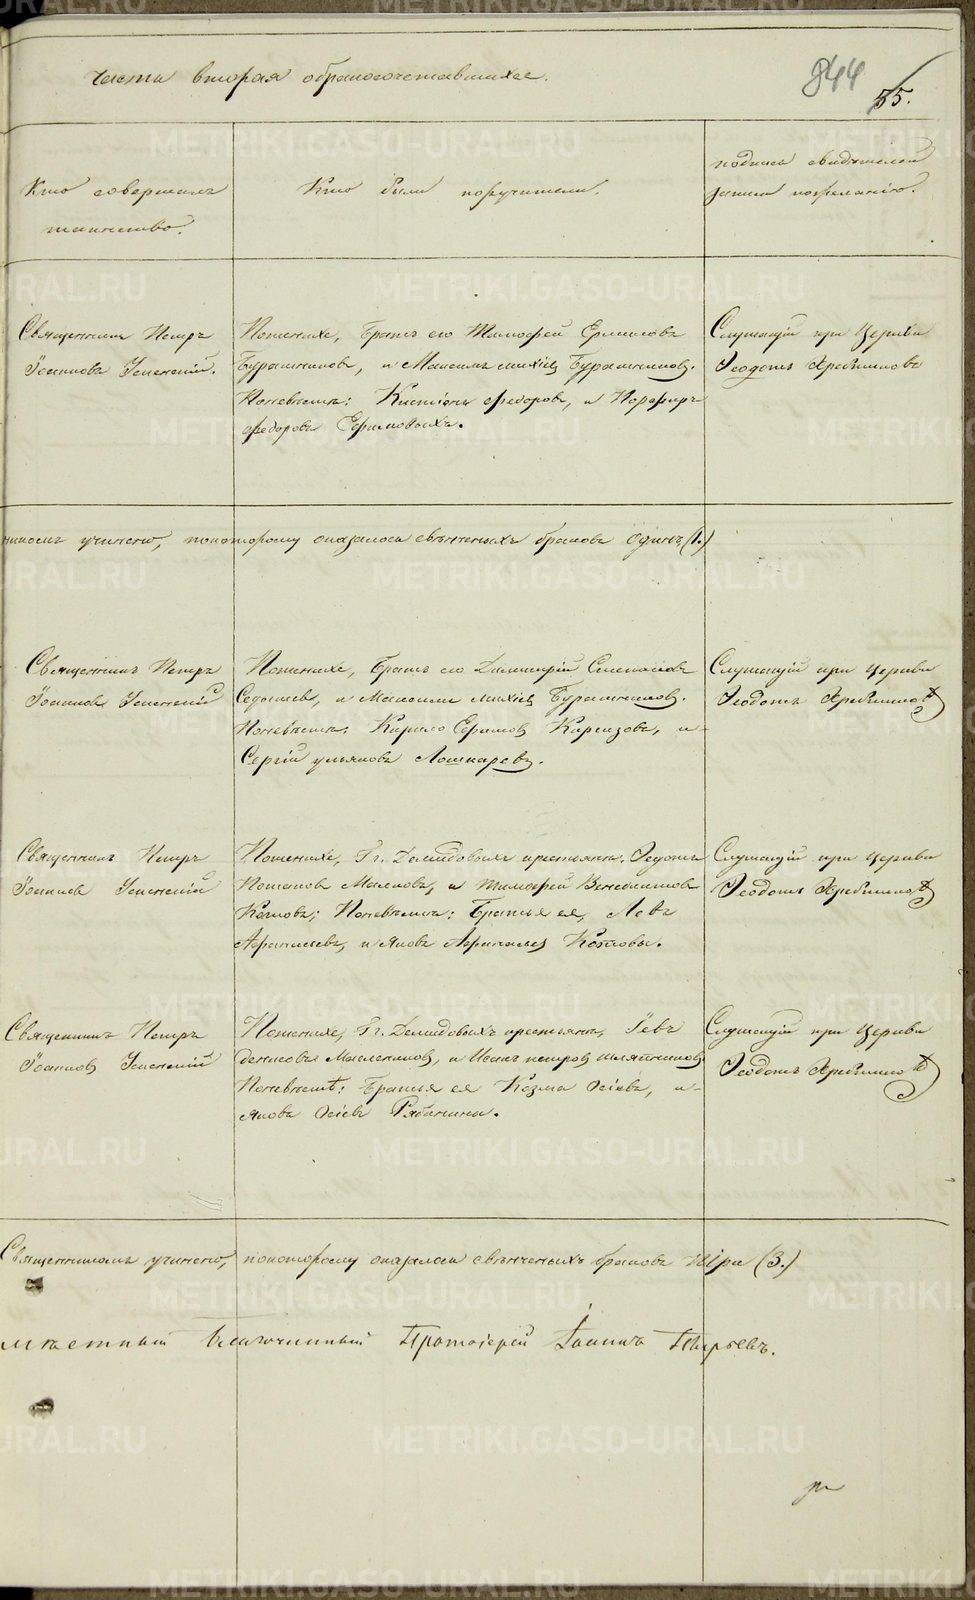 Часть вторая обракосочетавшихся.
844
55.
Кто совершалъ
таинство.
Кто были поручители.
подпись свидѣтелей
записи пожеланію.
Священникъ Петръ
Іоанновъ Успенскій.
Поженихѣ, Братъ его Тимофей Ермиловъ
Бурашниковъ, и Максимъ Бурашниковъ.
Поневѣстѣ: федоровъ, и Порфиръ
федоровъ Ефимовыхъ.
Служащій при Церкви
Ѳеодотъ
учинено, покоторому оказалось свѣнченыхъ браковъ Одинъ (1.)
Священникъ Петръ
Іоанновъ Успенскій
Поженихѣ, Братъ его Димитрій Степановъ
Седышевъ, и Максимъ Бурашниковъ.
Поневѣстѣ: Карпо Ефимовъ и
Сергій ульяновъ Лошкаревъ.
Служащій при церкви
Ѳеодотъ
Священникъ Петръ
Іоанновъ Успенскій
Поженихѣ, Гг. Демидовыхъ крестьяне: Ѳедотъ
Потаповъ и Тимофей
Козловъ; Поневѣстѣ: Братья ея, Левъ
Афанасьевъ, и Яковъ Афанасьевъ Козловы.
Служащій при церкви
Ѳеодотъ
Священникъ Петръ
Іоанновъ Успенскій
Поженихѣ, Гг. Демидовыхъ крестьяне,
денисовъ и Иванъ петровъ
Поневѣстѣ: Братья ея Козма Осіевъ, и
Яковъ Осіевъ Рябинины.
Служащій при Церкви
Ѳеодотъ
Священникомъ учинено, покоторому оказалось свѣнченыхъ браковъ три (3.)
мѣстный Благочинный Протоіерей Іоаннъ Пырьевъ.
METRIKI.GASO-URAL.RU